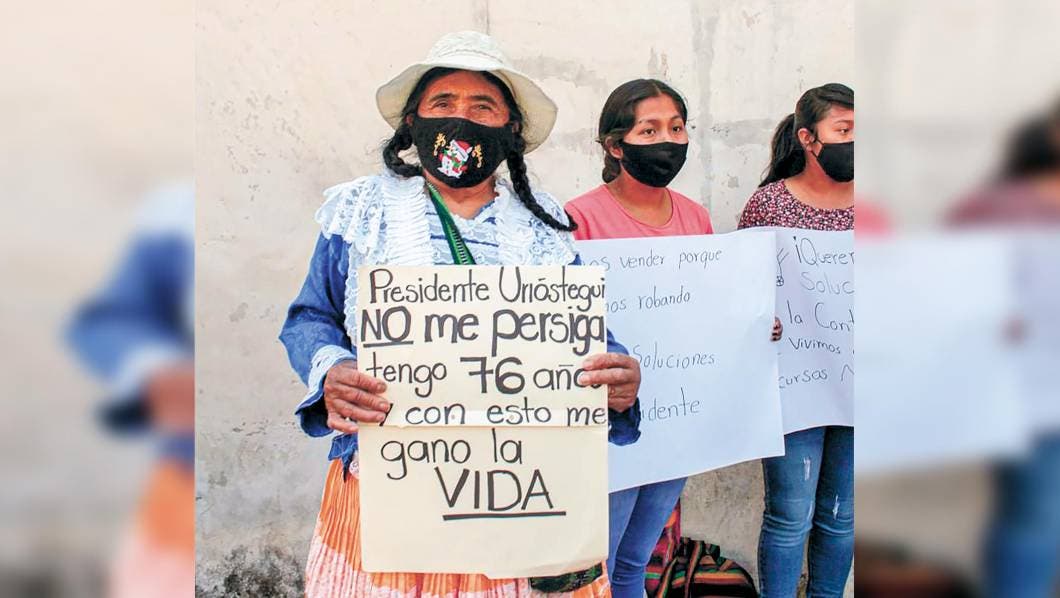 Presidente Urióstegui
NO me persiga
tengo 76 año
y con esto me
gano la
VIDA
os vender porque
mos robando
Soluciones
idente
¡Querer
Soluc
la Cont
Vivimos
cursas